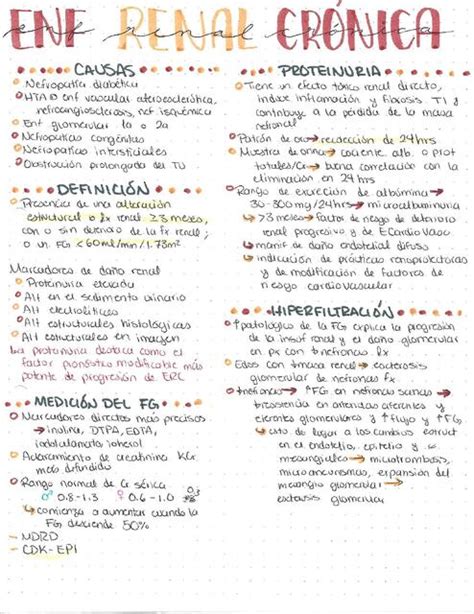 ENF RENAL CRÓNICA
CAUSAS
Nefropatía diabética
HTA ID enf vascular aterosclerótica,
nefroangiosclerosis, nef isquémica
Enf glomerular 1a o 2a
Nefropatías congénitas
Nefropatías intersticiales
Obstrucción prolongada del TU
DEFINICIÓN
Presencia de una alteración
estructural o fx renal ≥3 meses,
con o sin deterioro de la fx renal;
o un FG <60ml/min/1.73m²
Marcadores de daño renal
Proteinuria elevada
Alt en el sedimento urinario
Alt electrolíticas
Alt estructurales histológicas
Alt estructurales en imagen
La proteinuria destaca como el
factor pronóstico modificable más
potente de progresión de ERC
MEDICIÓN DEL FG
Marcadores directos más precisos
→ inulina, DTPA, EDTA,
iodotalamato iohexol
Aclaramiento de creatinina KCr
más difundido
Rango normal de Cr sérica
♂ 0.8-1.3 ♀ 0.6-1.0
↳ comienza a aumentar cuando la
FG desciende 50%
- MDRD
- CDK-EPI
PROTEINURIA
Tiene un efecto tóxico renal directo,
induce inflamación y fibrosis TI y
contribuye a la pérdida de la masa
nefronal
Patrón de oro → recolección de 24hrs
Muestra de orina → cociente alb. o prot
totales/Cr → buena correlación con la
eliminación en 24hrs
Rango de excreción de albúmina →
30-300mg/24hrs → microalbuminuria
↳ >3 meses → factor de riesgo de deterioro
renal progresivo y de ECardioVasc
↳ manif de daño endotelial difuso
↳ indicación de prácticas renoprotectoras
y de modificación de factores de
riesgo cardiovascular
HIPERFILTRACIÓN
↑ patológico de la FG explica la progresión
de la insuf renal y el daño glomerular
en px con ↓nefronas fx
Edos con ↓masa renal → esclerosis
glomerular de nefronas fx
↓nefronas → ↑FG en nefronas sanas →
↓resistencia en arteriolas aferentes y
eferentes glomerulares y ↑flujo y ↑FG
↳ esto da lugar a los cambios estruct
en el endotelio, epitelio y
mesangiales → microtrombosis,
microaneurismas, expansión del
mesangio glomerular →
esclerosis glomerular